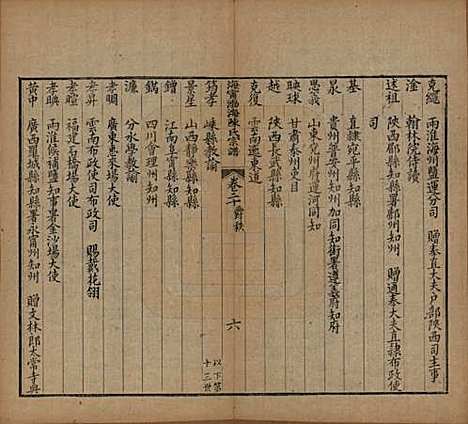 克繩 兩淮海州鹽運分司 贈奉直大夫戶部陝西司主事
淦 翰林院侍讀
述祖 陝西郿縣知縣署鄜州知州 贈通奉大夫直隸布政使
司
基 直隸宛平縣知縣
泉 貴州普安州知州 知銜署遵義府知府
思義 山東兗州府運河同知
映球 甘肅秦州吏目
越 陝西長武縣知縣
克復 雲南迤東道
海寧渤海陳氏宗譜 卷二十 爵秩 六
筠孝 嵊縣教諭
景星 山西靜樂縣知縣
鏳 江南阜寧縣知縣
鎬 四川會理州知州
濂 分水學教諭
老明 廣東惠來場大使 以下第十三世
老昇 雲南布政使司布政司 賜戴花翎
老暄 福建石碼場大使
老暎 兩淮候補鹽知事署金沙場大使
黃中 廣西羅城縣知縣署永寧州知州 贈文林郎太常寺典